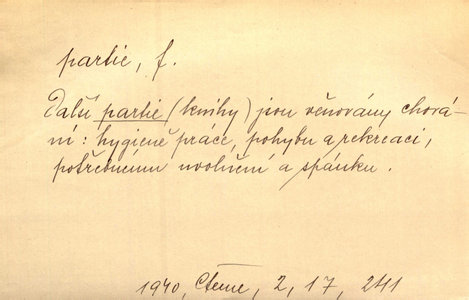 partie, f.
Další partie (knihy) jsou věnovány chová-
ní: hygieně práce, pohybu a rekreaci,
potřebnému uvolnění a spánku.
1940, Čteme, 2, 17, 241